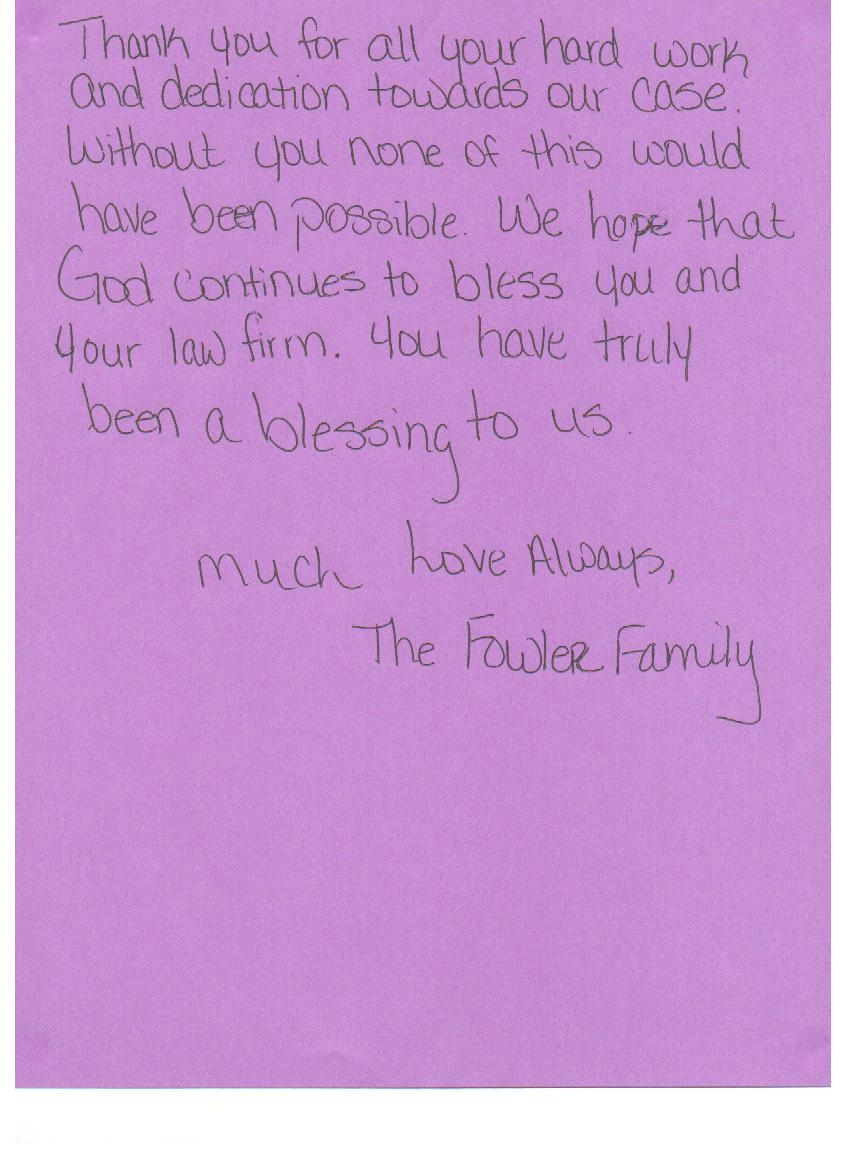 Thank you for all your hard work
and dedication towards our case.
Without you none of this would
have been possible. We hope that
God continues to bless you and
your law firm. You have truly
been a blessing to us.
Much Love Always,
The Fowler Family